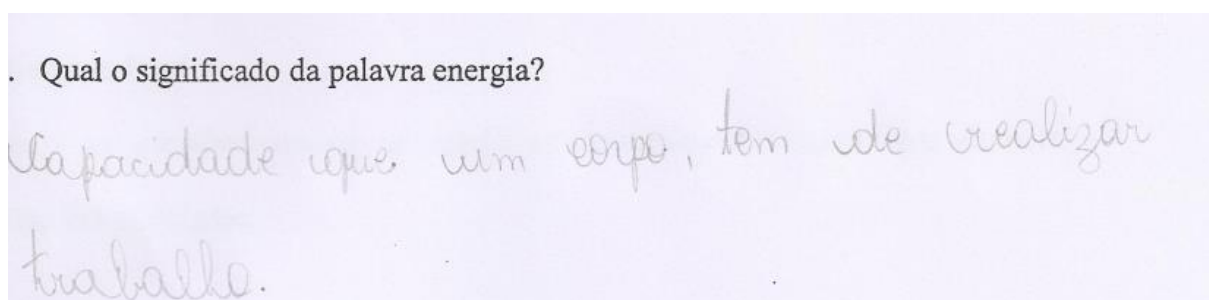 . Qual o significado da palavra energia?
Capacidade que um corpo, tem de realizar
trabalho.